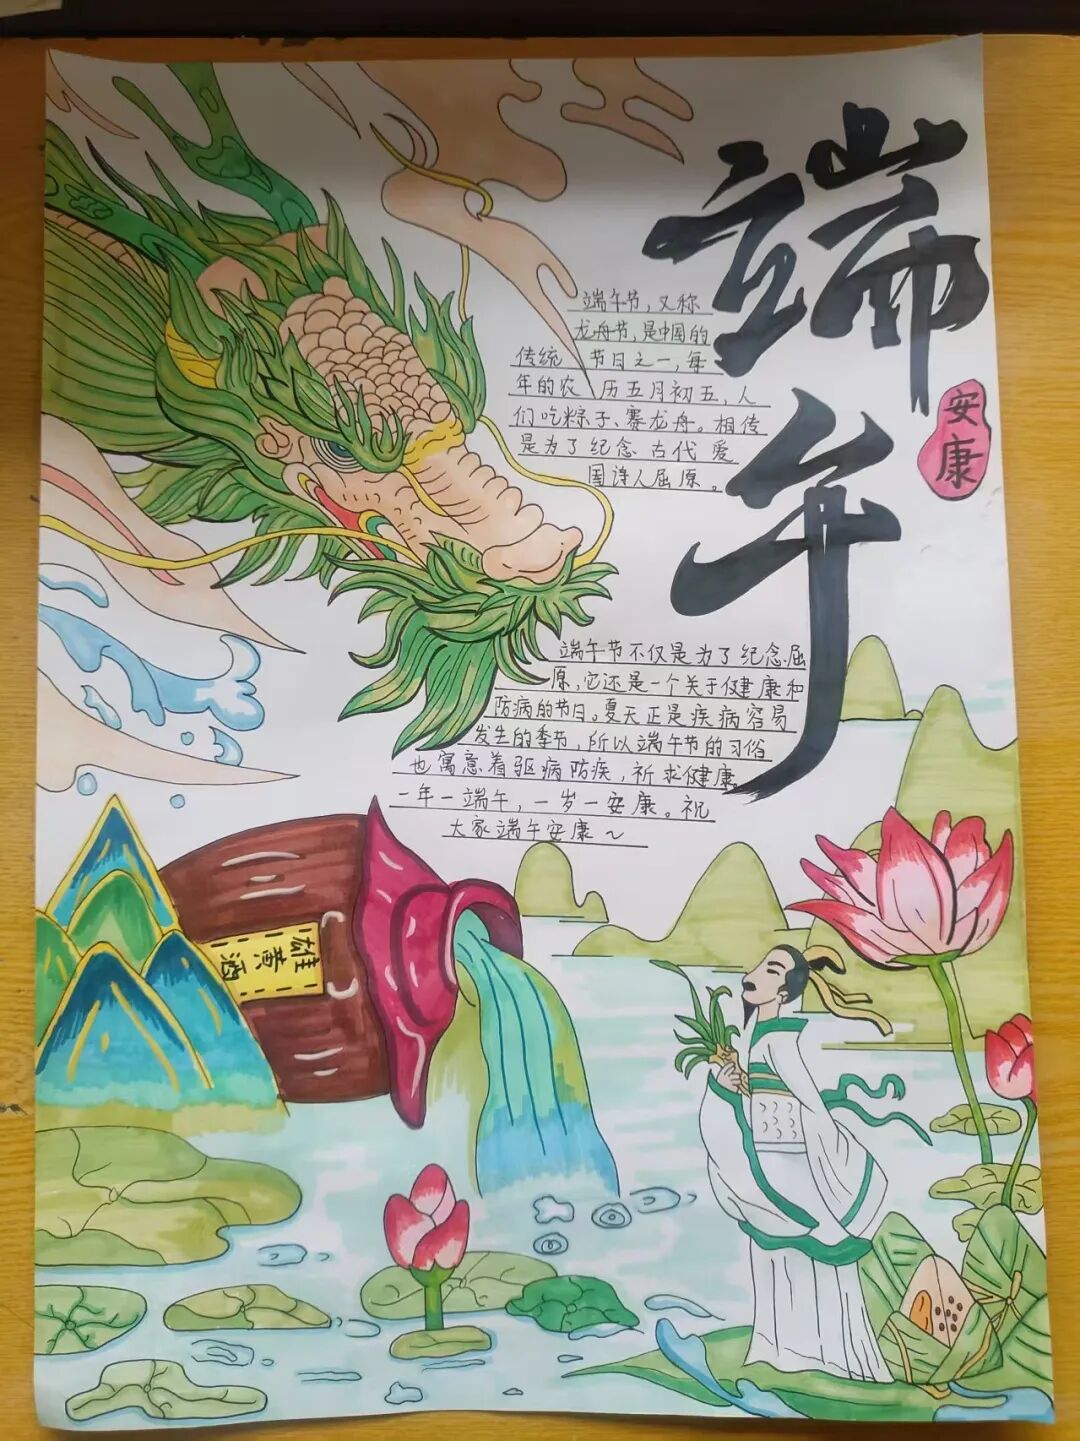 端午
安康
端午节，又称
龙舟节，是中国的
传统 节日之一，每
年的农 历五月初五，人
们吃粽子、赛龙舟。相传
是为了纪念 古代 爱
国诗人屈原。
端午节不仅是为了纪念屈
原，它还是一个关于健康和
防病的节日。夏天正是疾病容易
发生的季节，所以端午节的习俗
也寓意着驱病防疾，祈求健康。
一年一端午，一岁一安康。祝
大家端午安康～
雄黄酒